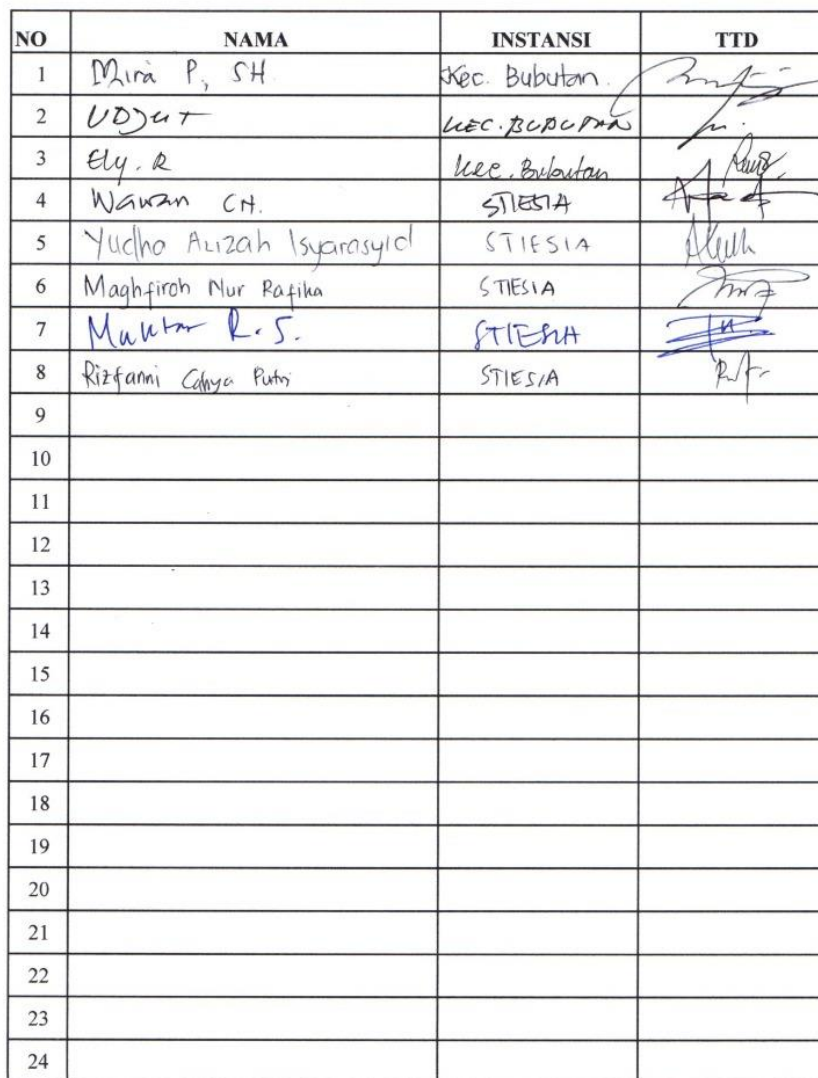 NO NAMA INSTANSI TTD
1 Mira P, SH Kec. Bubutan.
2 KEC. BUBUTAN
3 Ely. R Kec. Bubutan
4 Wawan CH. STIESIA
5 Yudho Azizah Isyarasyid STIESIA
6 Maghfiroh Nur Rafika STIESIA
7 Muhtar R.S. STIESIA
8 Rizfanni Cahya Putri STIESIA
9
10
11
12
13
14
15
16
17
18
19
20
21
22
23
24